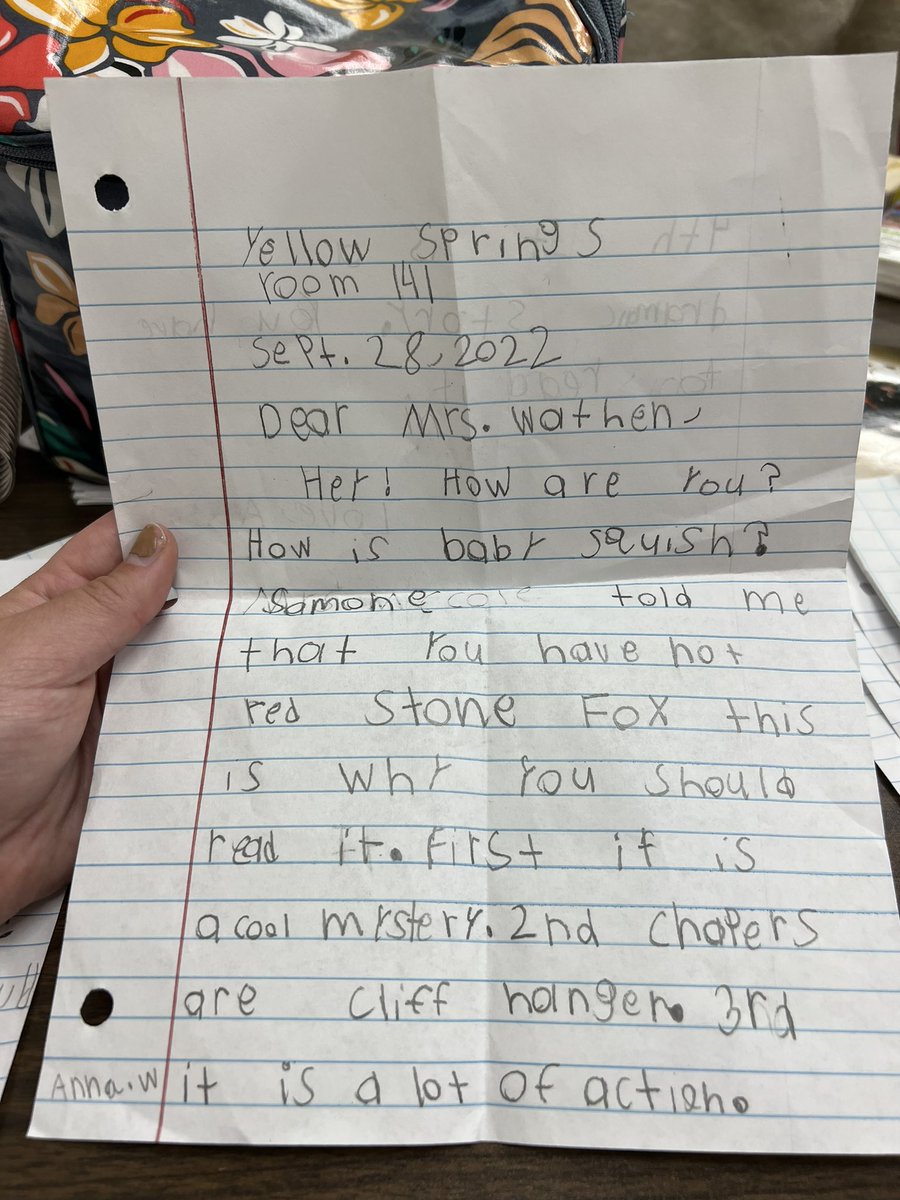 Yellow Springs
room 141
Sept. 28, 2022
Dear Mrs. Wathen,
Hey! How are you?
How is baby squish?
Somone told me
that you have not
red Stone Fox this
is why you should
read it. First it is
a cool mystery. 2nd chapers
are cliff hanger. 3rd
Anna.W it is a lot of action.
4th
dramac story. you have
to read
Love, An